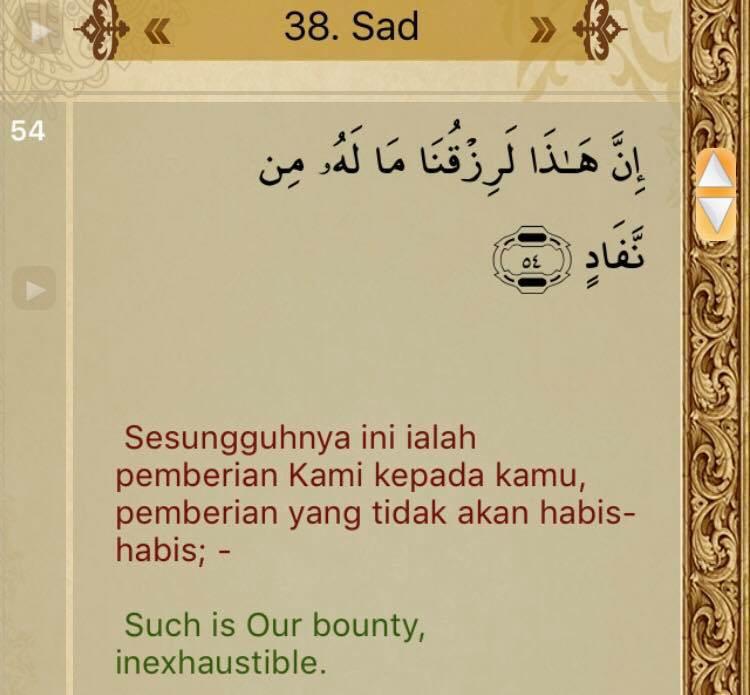 « 38. Sad »
54
إِنَّ هَـٰذَا لَرِزْقُنَا مَا لَهُۥ مِن
نَّفَادٍ ٥٤
Sesungguhnya ini ialah
pemberian Kami kepada kamu,
pemberian yang tidak akan habis-
habis; -
Such is Our bounty,
inexhaustible.